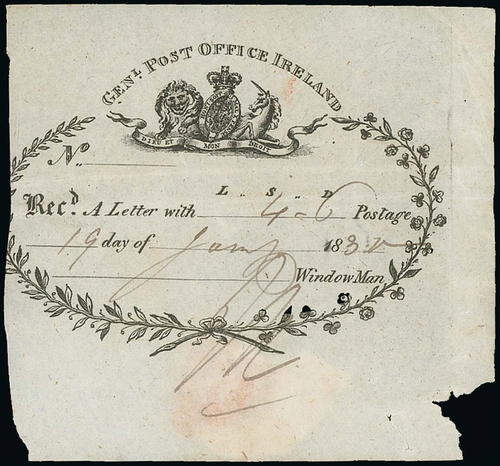 GENL POST OFFICE IRELAND
DIEU ET MON DROIT
No
L S D
Recd. A Letter with 4-6 Postage
19 day of Jany 183
Window Man